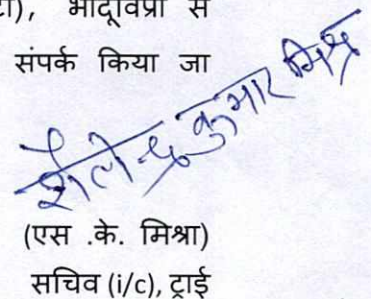 टा), भादूविप्रा से
संपर्क किया जा
शैलेन्द्र कुमार मिश्र
(एस .के. मिश्रा)
सचिव (i/c), ट्राई